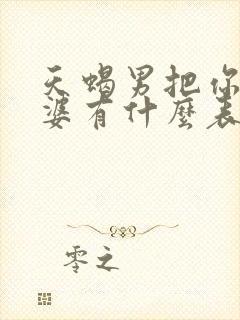 天蝎男把你
婆有什麼表
零之